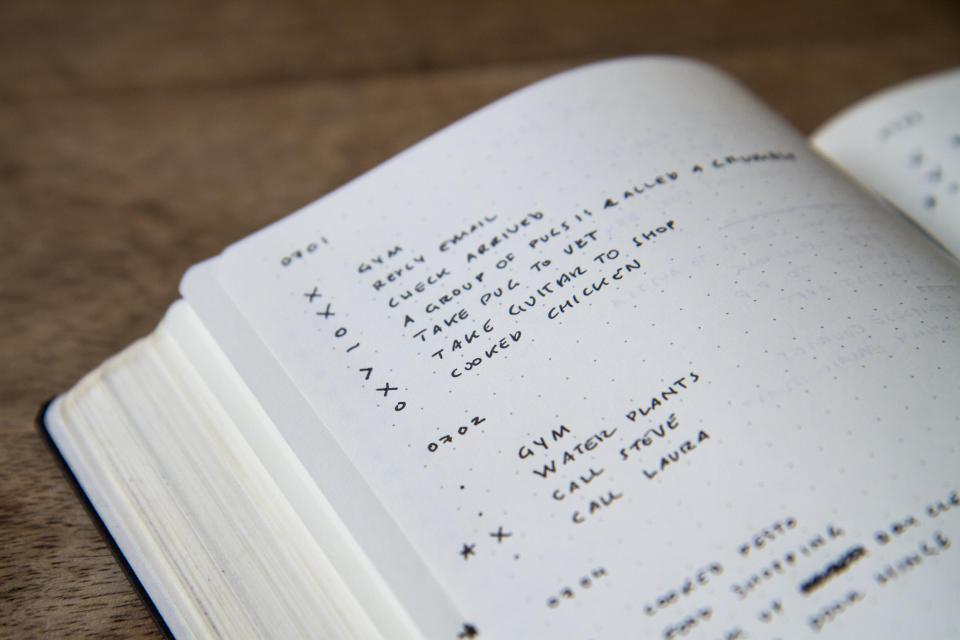 0701
X GYM
X REPLY EMAIL
O CHECK ARRIVED
– A GROUP OF PUGS IS CALLED A GRUMBLE
> TAKE PUG TO VET
X TAKE GUITAR TO SHOP
O COOKED CHICKEN
0702
. GYM
. WATER PLANTS
* X CALL STEVE
. CALL LAURA
0704
COOKED PESTO
SHOPPING
UP